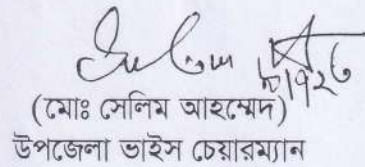 (মোঃ সেলিম আহম্মেদ)
উপজেলা ভাইস চেয়ারম্যান